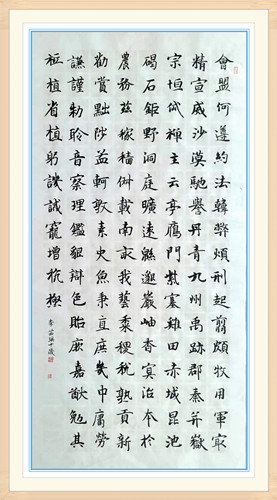 會盟何遵約法韓弊煩刑起翦頗牧用軍最
精宣威沙漠馳譽丹青九州禹跡郡秦并嶽
宗恒岱禪主云亭鴈門紫塞雞田赤城昆池
碣石鉅野洞庭曠遠緜邈巖岫杳冥治本於
農務茲稼穡俶載南畝我藝黍稷稅熟貢新
勸賞黜陟孟軻敦素史魚秉直庶幾中庸勞
謙謹勅聆音察理鑑貌辯色貽厥嘉猷勉其
祗植省植躬譏誡寵增抗極
十歲